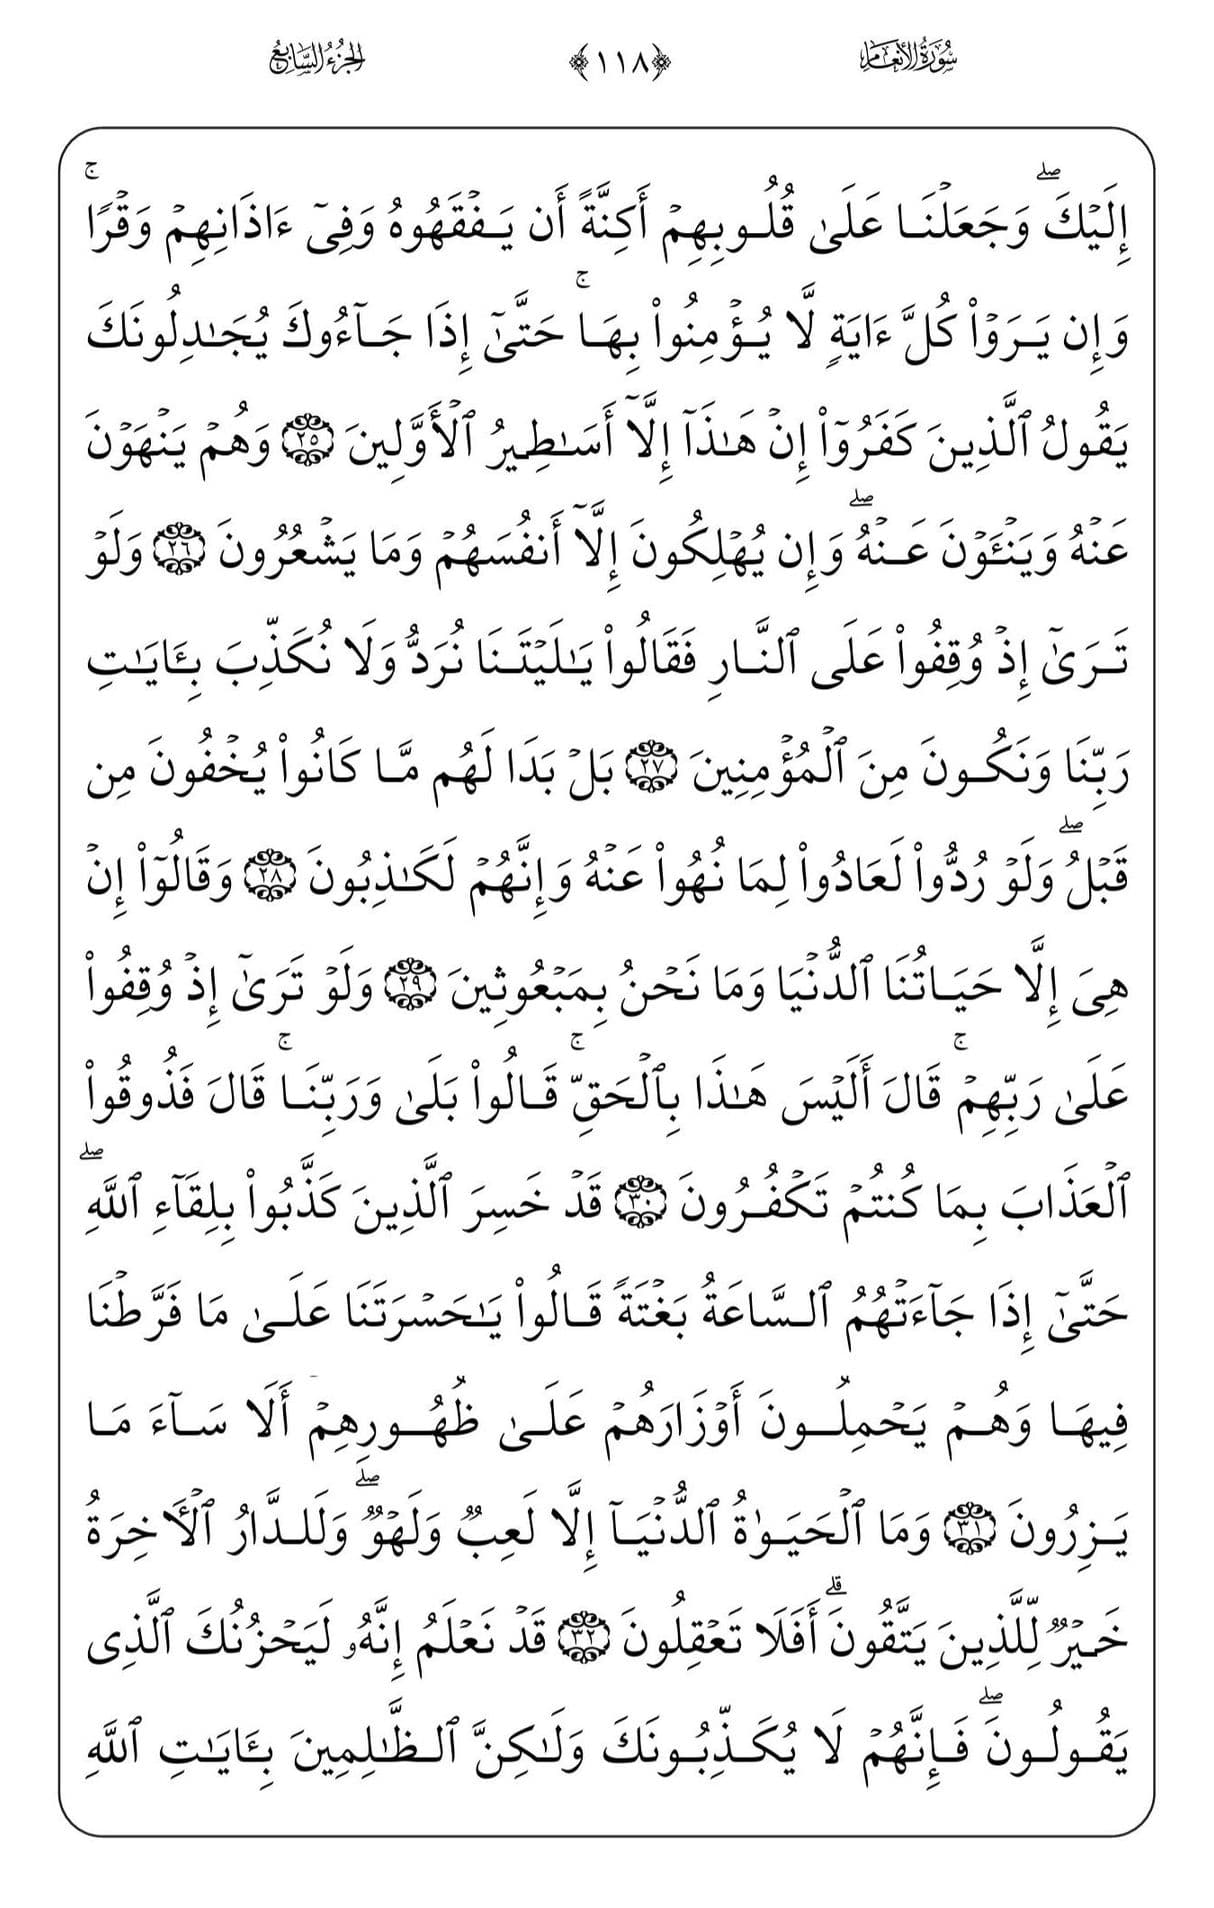 سُورَةُ الأَنْعَامِ ﴿١١٨﴾ الجُزْءُ السَّابِعُ
إِلَيْكَۖ وَجَعَلْنَا عَلَىٰ قُلُوبِهِمْ أَكِنَّةً أَن يَفْقَهُوهُ وَفِىٓ ءَاذَانِهِمْ وَقْرًاۚ
وَإِن يَرَوْا۟ كُلَّ ءَايَةٍ لَّا يُؤْمِنُوا۟ بِهَاۚ حَتَّىٰٓ إِذَا جَآءُوكَ يُجَـٰدِلُونَكَ
يَقُولُ ٱلَّذِينَ كَفَرُوٓا۟ إِنْ هَـٰذَآ إِلَّآ أَسَـٰطِيرُ ٱلْأَوَّلِينَ ٢٥ وَهُمْ يَنْهَوْنَ
عَنْهُ وَيَنْـَٔوْنَ عَنْهُۖ وَإِن يُهْلِكُونَ إِلَّآ أَنفُسَهُمْ وَمَا يَشْعُرُونَ ٢٦ وَلَوْ
تَرَىٰٓ إِذْ وُقِفُوا۟ عَلَى ٱلنَّارِ فَقَالُوا۟ يَـٰلَيْتَنَا نُرَدُّ وَلَا نُكَذِّبَ بِـَٔايَـٰتِ
رَبِّنَا وَنَكُونَ مِنَ ٱلْمُؤْمِنِينَ ٢٧ بَلْ بَدَا لَهُم مَّا كَانُوا۟ يُخْفُونَ مِن
قَبْلُۖ وَلَوْ رُدُّوا۟ لَعَادُوا۟ لِمَا نُهُوا۟ عَنْهُ وَإِنَّهُمْ لَكَـٰذِبُونَ ٢٨ وَقَالُوٓا۟ إِنْ
هِىَ إِلَّا حَيَاتُنَا ٱلدُّنْيَا وَمَا نَحْنُ بِمَبْعُوثِينَ ٢٩ وَلَوْ تَرَىٰٓ إِذْ وُقِفُوا۟
عَلَىٰ رَبِّهِمْۚ قَالَ أَلَيْسَ هَـٰذَا بِٱلْحَقِّۚ قَالُوا۟ بَلَىٰ وَرَبِّنَاۚ قَالَ فَذُوقُوا۟
ٱلْعَذَابَ بِمَا كُنتُمْ تَكْفُرُونَ ٣٠ قَدْ خَسِرَ ٱلَّذِينَ كَذَّبُوا۟ بِلِقَآءِ ٱللَّهِۖ
حَتَّىٰٓ إِذَا جَآءَتْهُمُ ٱلسَّاعَةُ بَغْتَةً قَالُوا۟ يَـٰحَسْرَتَنَا عَلَىٰ مَا فَرَّطْنَا
فِيهَا وَهُمْ يَحْمِلُونَ أَوْزَارَهُمْ عَلَىٰ ظُهُورِهِمْ أَلَا سَآءَ مَا
يَزِرُونَ ٣١ وَمَا ٱلْحَيَوٰةُ ٱلدُّنْيَآ إِلَّا لَعِبٌ وَلَهْوٌۖ وَلَلدَّارُ ٱلْـَٔاخِرَةُ
خَيْرٌ لِّلَّذِينَ يَتَّقُونَۗ أَفَلَا تَعْقِلُونَ ٣٢ قَدْ نَعْلَمُ إِنَّهُۥ لَيَحْزُنُكَ ٱلَّذِى
يَقُولُونَۖ فَإِنَّهُمْ لَا يُكَذِّبُونَكَ وَلَـٰكِنَّ ٱلظَّـٰلِمِينَ بِـَٔايَـٰتِ ٱللَّهِ